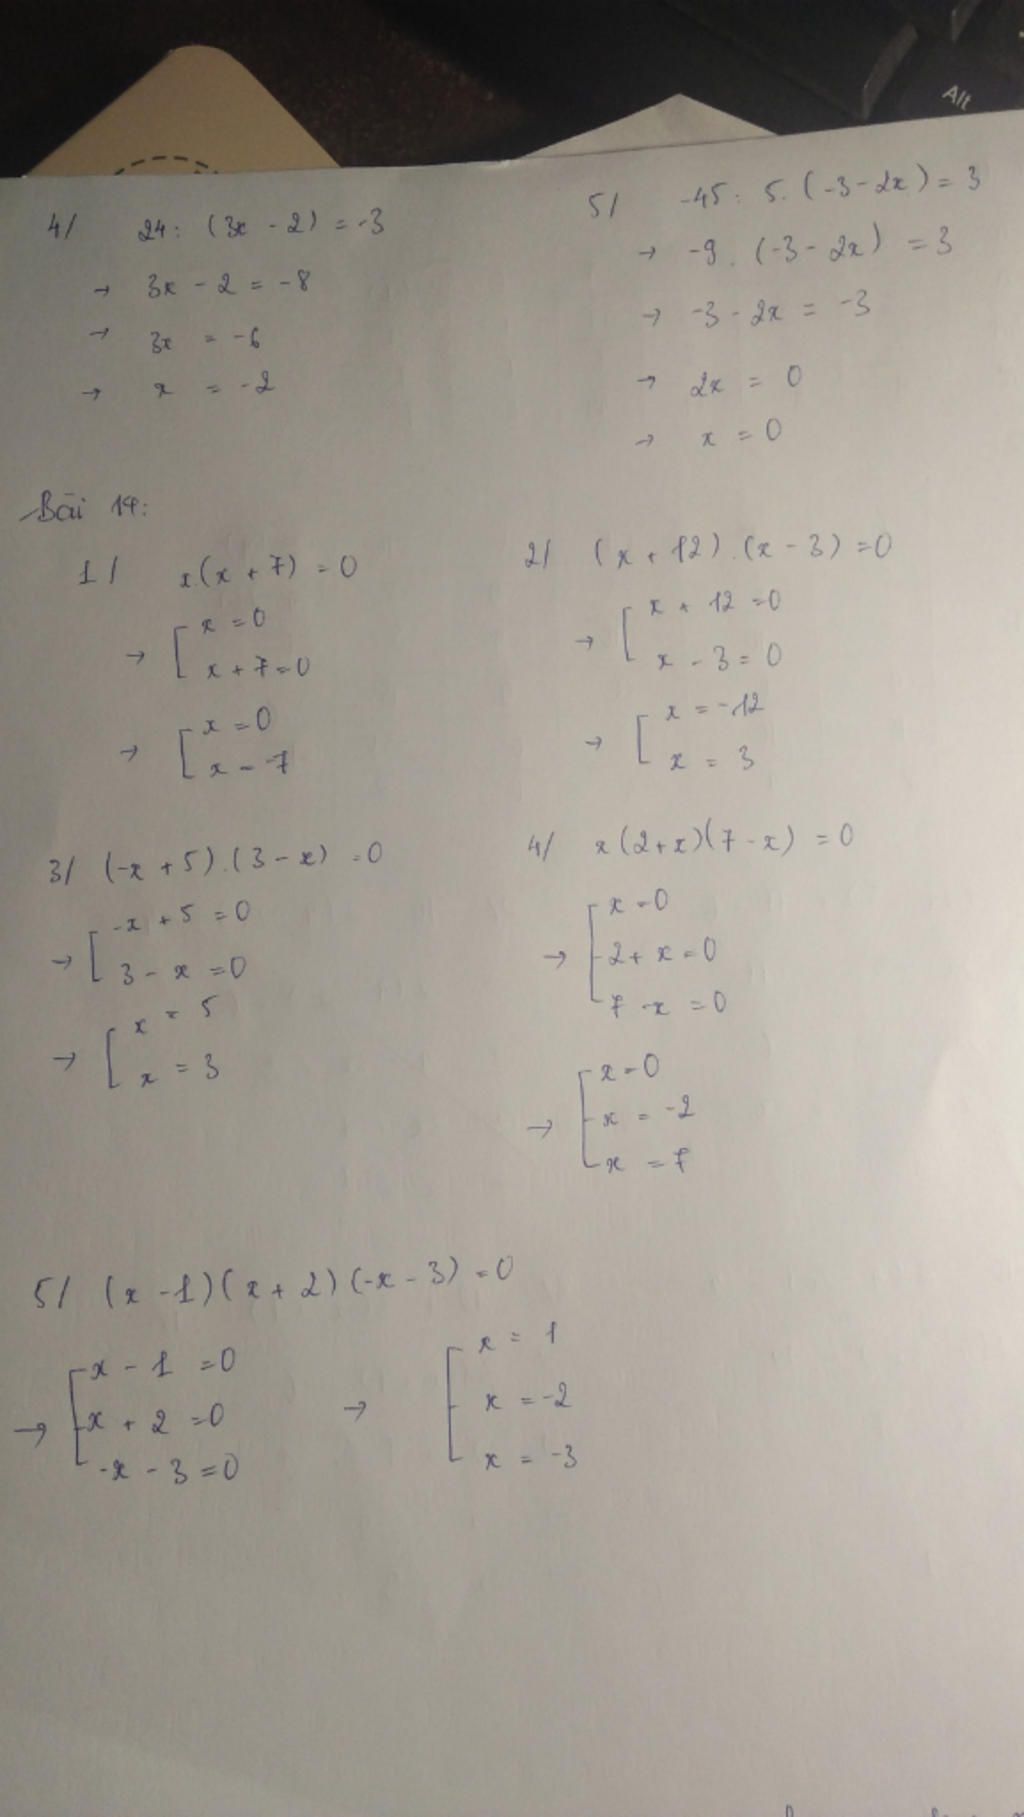 Alt
4/ 24 : (3x - 2) = -3
→ 3x - 2 = -8
→ 3x = -6
→ x = -2
5/ -45 : 5 . (-3 - 2x) = 3
→ -9 . (-3 - 2x) = 3
→ -3 - 2x = -3
→ 2x = 0
→ x = 0
Bài 19:
1/ x.(x + 7) = 0
→ [ x = 0
x + 7 = 0
→ [ x = 0
x = -7
2/ (x + 12) . (x - 3) = 0
→ [ x + 12 = 0
x - 3 = 0
→ [ x = -12
x = 3
3/ (-x + 5) . (3 - x) = 0
→ [ -x + 5 = 0
3 - x = 0
→ [ x = 5
x = 3
4/ x(2+x)(7 - x) = 0
→ [ x = 0
2 + x = 0
7 - x = 0
→ [ x = 0
x = -2
x = 7
5/ (x - 1)(x + 2)(-x - 3) = 0
→ [ x - 1 = 0
x + 2 = 0
-x - 3 = 0
→ [ x = 1
x = -2
x = -3